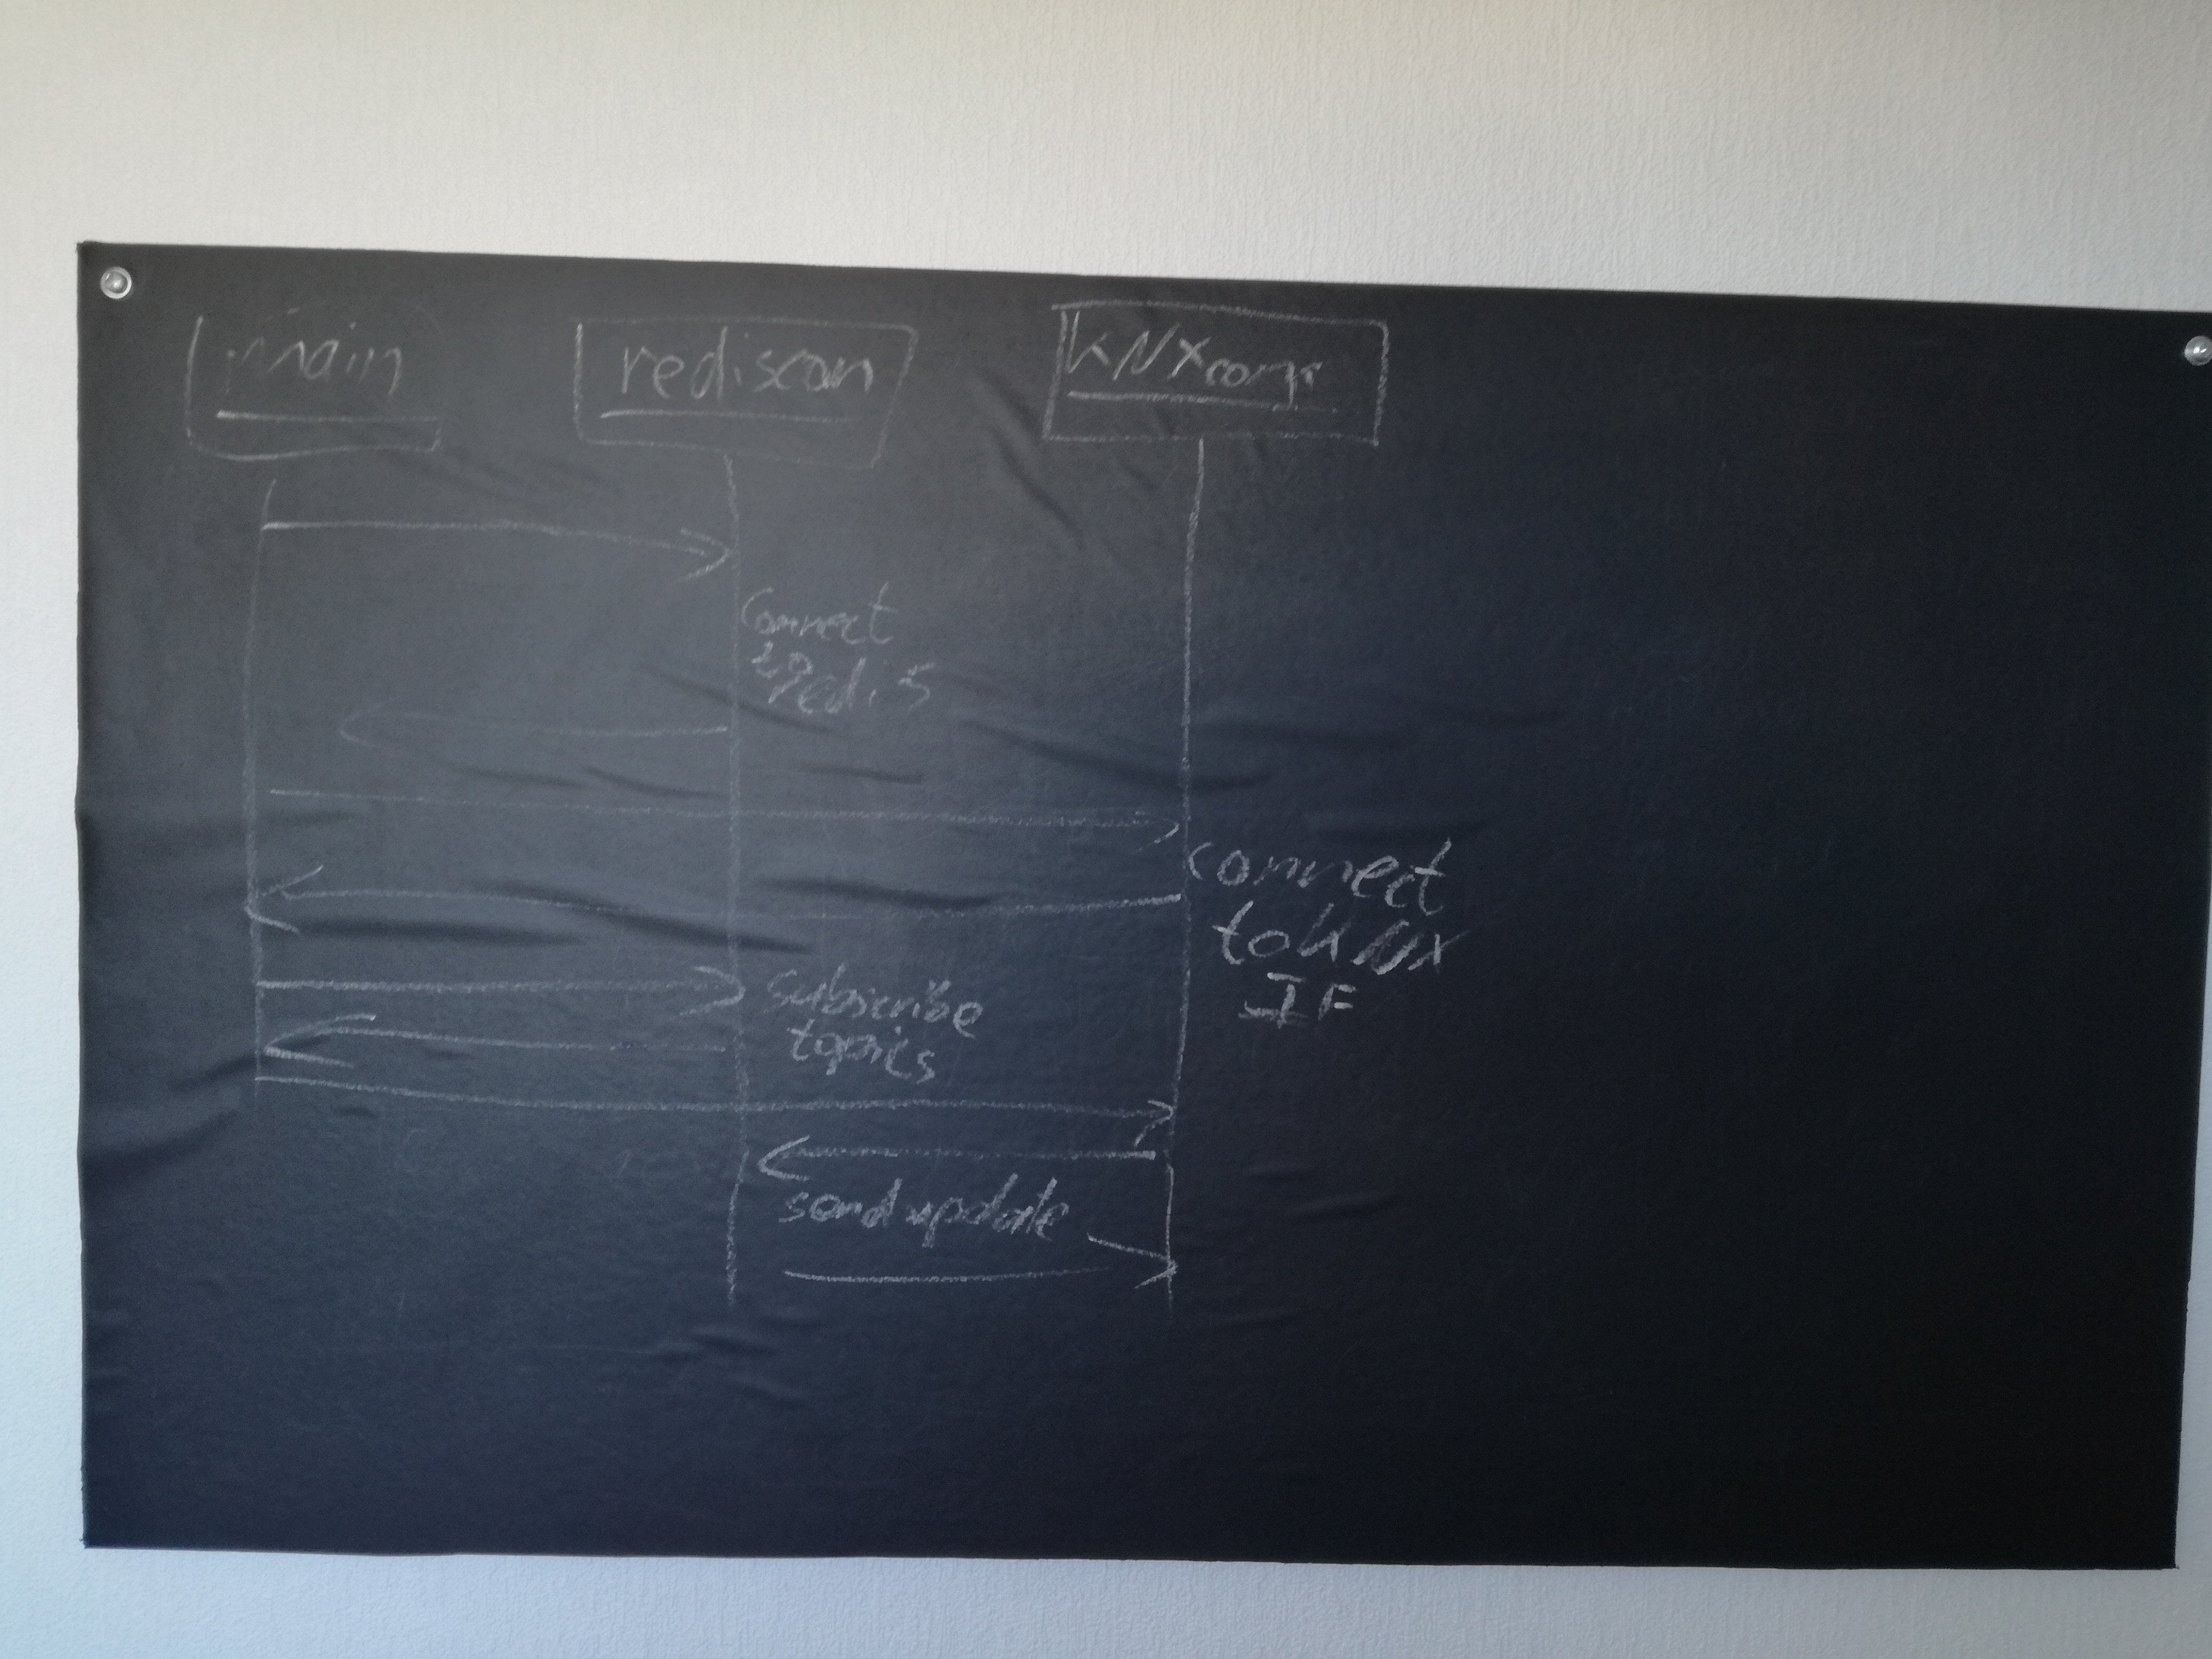 main
rediscon
KNX
connect
to
redis
connect
to KNX
IF
subscribe
topics
send update